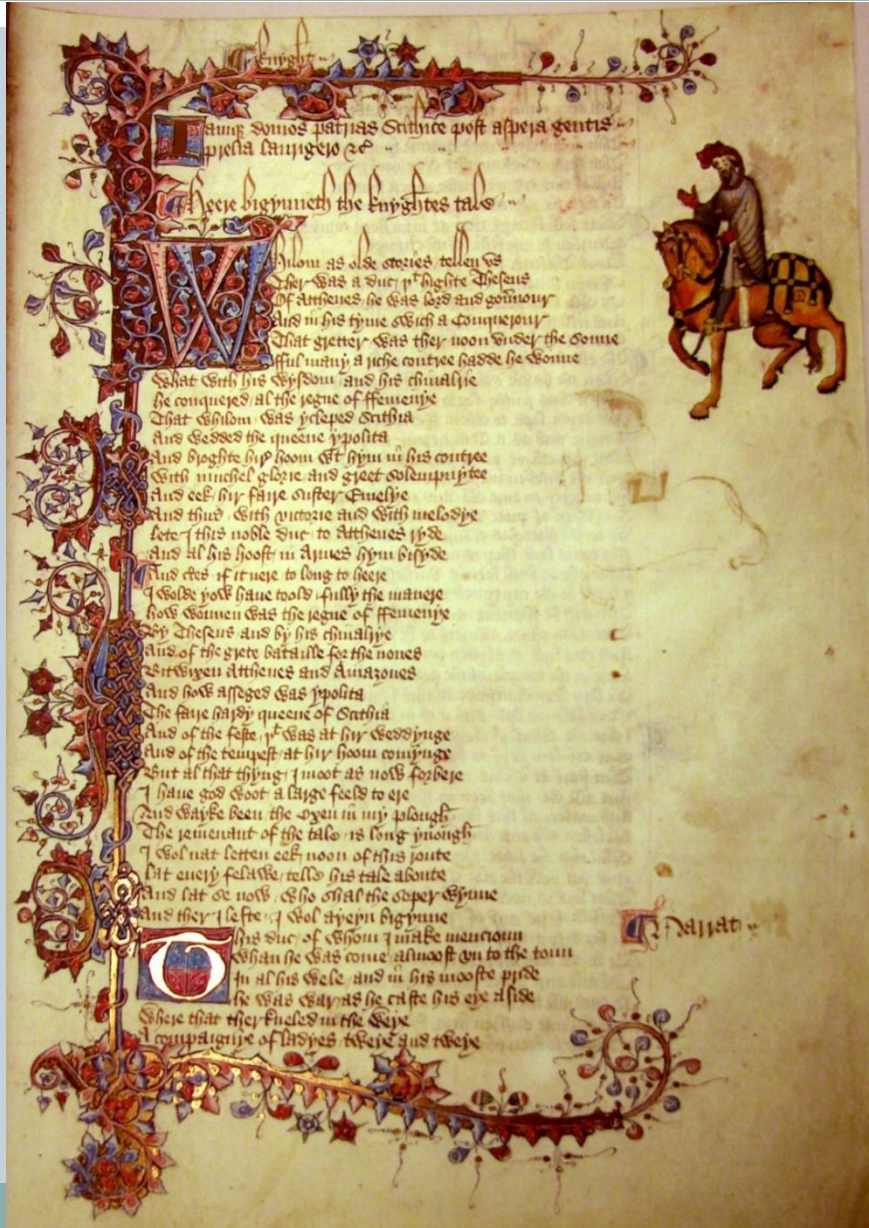 Knyght
Iamque domos patrias Scithice post aspera gentis
prelia laurigero &c
Heere bigynneth the knyghtes tale
Whilom as olde stories tellen vs
Ther was a duc þt highte Theseus
Of Atthenes he was lord and gouernour
And in his tyme swich a Conquerour
That gretter was ther noon vnder the sonne
fful many a riche contree hadde he wonne
What with his wysdom and his chiualrie
he conquered al the regne of ffemenye
That whilom was ycleped Scithia
And wedded the queene ypolita
And broghte hire hoom wt hym in his contree
With muchel glorie and greet solempnytee
And eek hir faire suster Emelye
And thus with victorie and with melodye
lete I this noble duc to Atthenes ryde
And al his hoost in Armes hym bisyde
And certes if it nere to long to heere
I wolde yow haue toold fully the manere
how wonnen was the regne of ffemenye
By Theseus and by his chiualrye
And of the grete bataille for the nones
Bitwixen Atthenes and Amazones
And how asseged was ypolita
The faire hardy queene of Scithia
And of the feste þt was at hir weddynge
And of the tempest at hir hoom comynge
But al that thyng I moot as now forbere
I haue god woot a large feeld to ere
And wayke been the Oxen in my plough
The remenant of the tale is long ynough
I wol nat letten eek noon of this route
lat euery felawe telle his tale aboute
And lat se now who shal the soper wynne
And ther I lefte I wol ayeyn bigynne
This duc of whom I make mencioun
Narrat
Whan he was come almoost vn to the toun
In al his wele and in his mooste pride
he was war as he caste his eye aside
Where that ther kneled in the weye
A compaignye of ladyes tweye and tweye